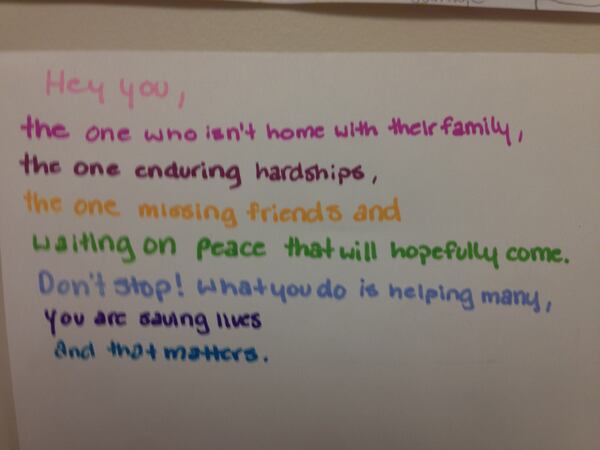 Hey you,
the one who isn't home with their family,
the one enduring hardships,
the one missing friends and
waiting on peace that will hopefully come.
Don't stop! What you do is helping many,
you are saving lives
And that matters.